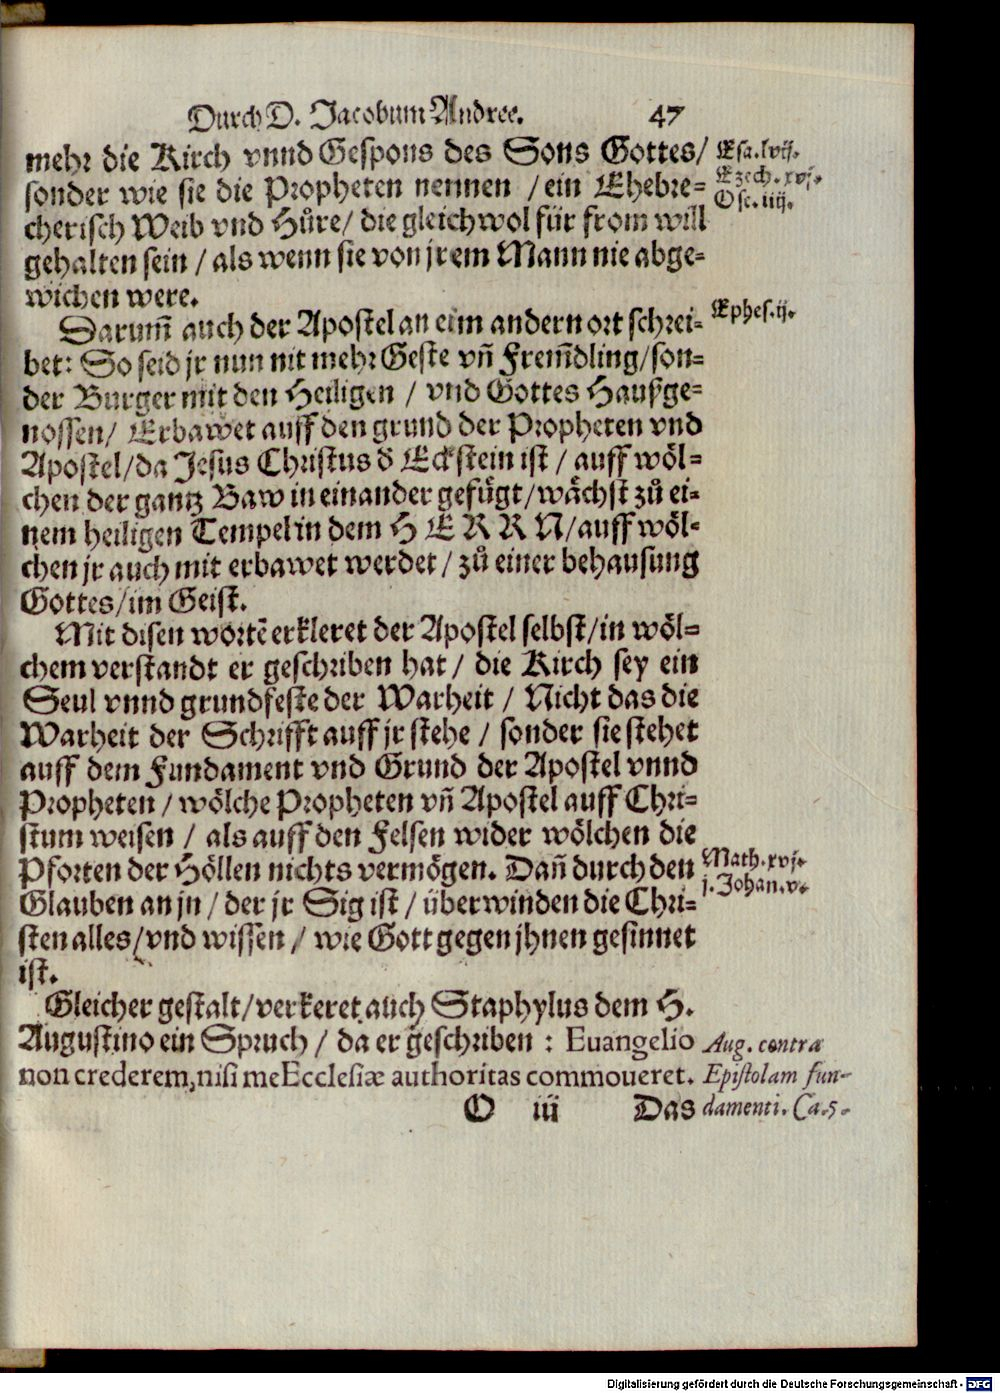 Durch D. Jacobum Andree. 47
mehr die Kirch vnnd Gespons des Sons Gottes/
Esa. lvij.
sonder wie sie die Propheten nennen / ein Ehebre=
Ezech. xvj.
Ose. iiij.
cherisch Weib vnd Hůre/ die gleichwol für from will
gehalten sein / als wenn sie von jrem Mann nie abge=
wichen were.
Darum̃ auch der Apostel an eim andern ort schrei=
Ephes. ij.
bet: So seid jr nun nit mehr Geste vñ Frem̃dling/son=
der Burger mit den Heiligen / vnd Gottes Haußge=
nossen/ Erbawet auff den grund der Propheten vnd
Apostel/da Jesus Christus d̕ Eckstein ist / auff wöl=
chen der gantz Baw in einander gefügt/wächst zů ei=
nem heiligen Tempel in dem HERRN/auff wöl=
chen jr auch mit erbawet werdet / zů einer behausung
Gottes/im Geist.
Mit disen wortẽ erkleret der Apostel selbst/in wöl=
chem verstandt er geschriben hat / die Kirch sey ein
Seul vnnd grundfeste der Warheit / Nicht das die
Warheit der Schrifft auff jr stehe / sonder sie stehet
auff dem Fundament vnd Grund der Apostel vnnd
Propheten / wölche Propheten vñ Apostel auff Chri=
stum weisen / als auff den Felsen wider wölchen die
Pforten der Höllen nichts vermögen. Dañ durch den
Math. xvj.
Glauben an jn / der jr Sig ist / überwinden die Chri=
j. Johan. v.
sten alles/vnd wissen / wie Gott gegen jhnen gesinnet
ist.
Gleicher gestalt/verkeret auch Staphylus dem H.
Augustino ein Spruch / da er geschriben : Euangelio
Aug. contra
non crederem, nisi me Ecclesiæ authoritas commoueret.
Epistolam fun-
O iii Das
damenti. Ca. 5.
Digitalisierung gefördert durch die Deutsche Forschungsgemeinschaft - DFG